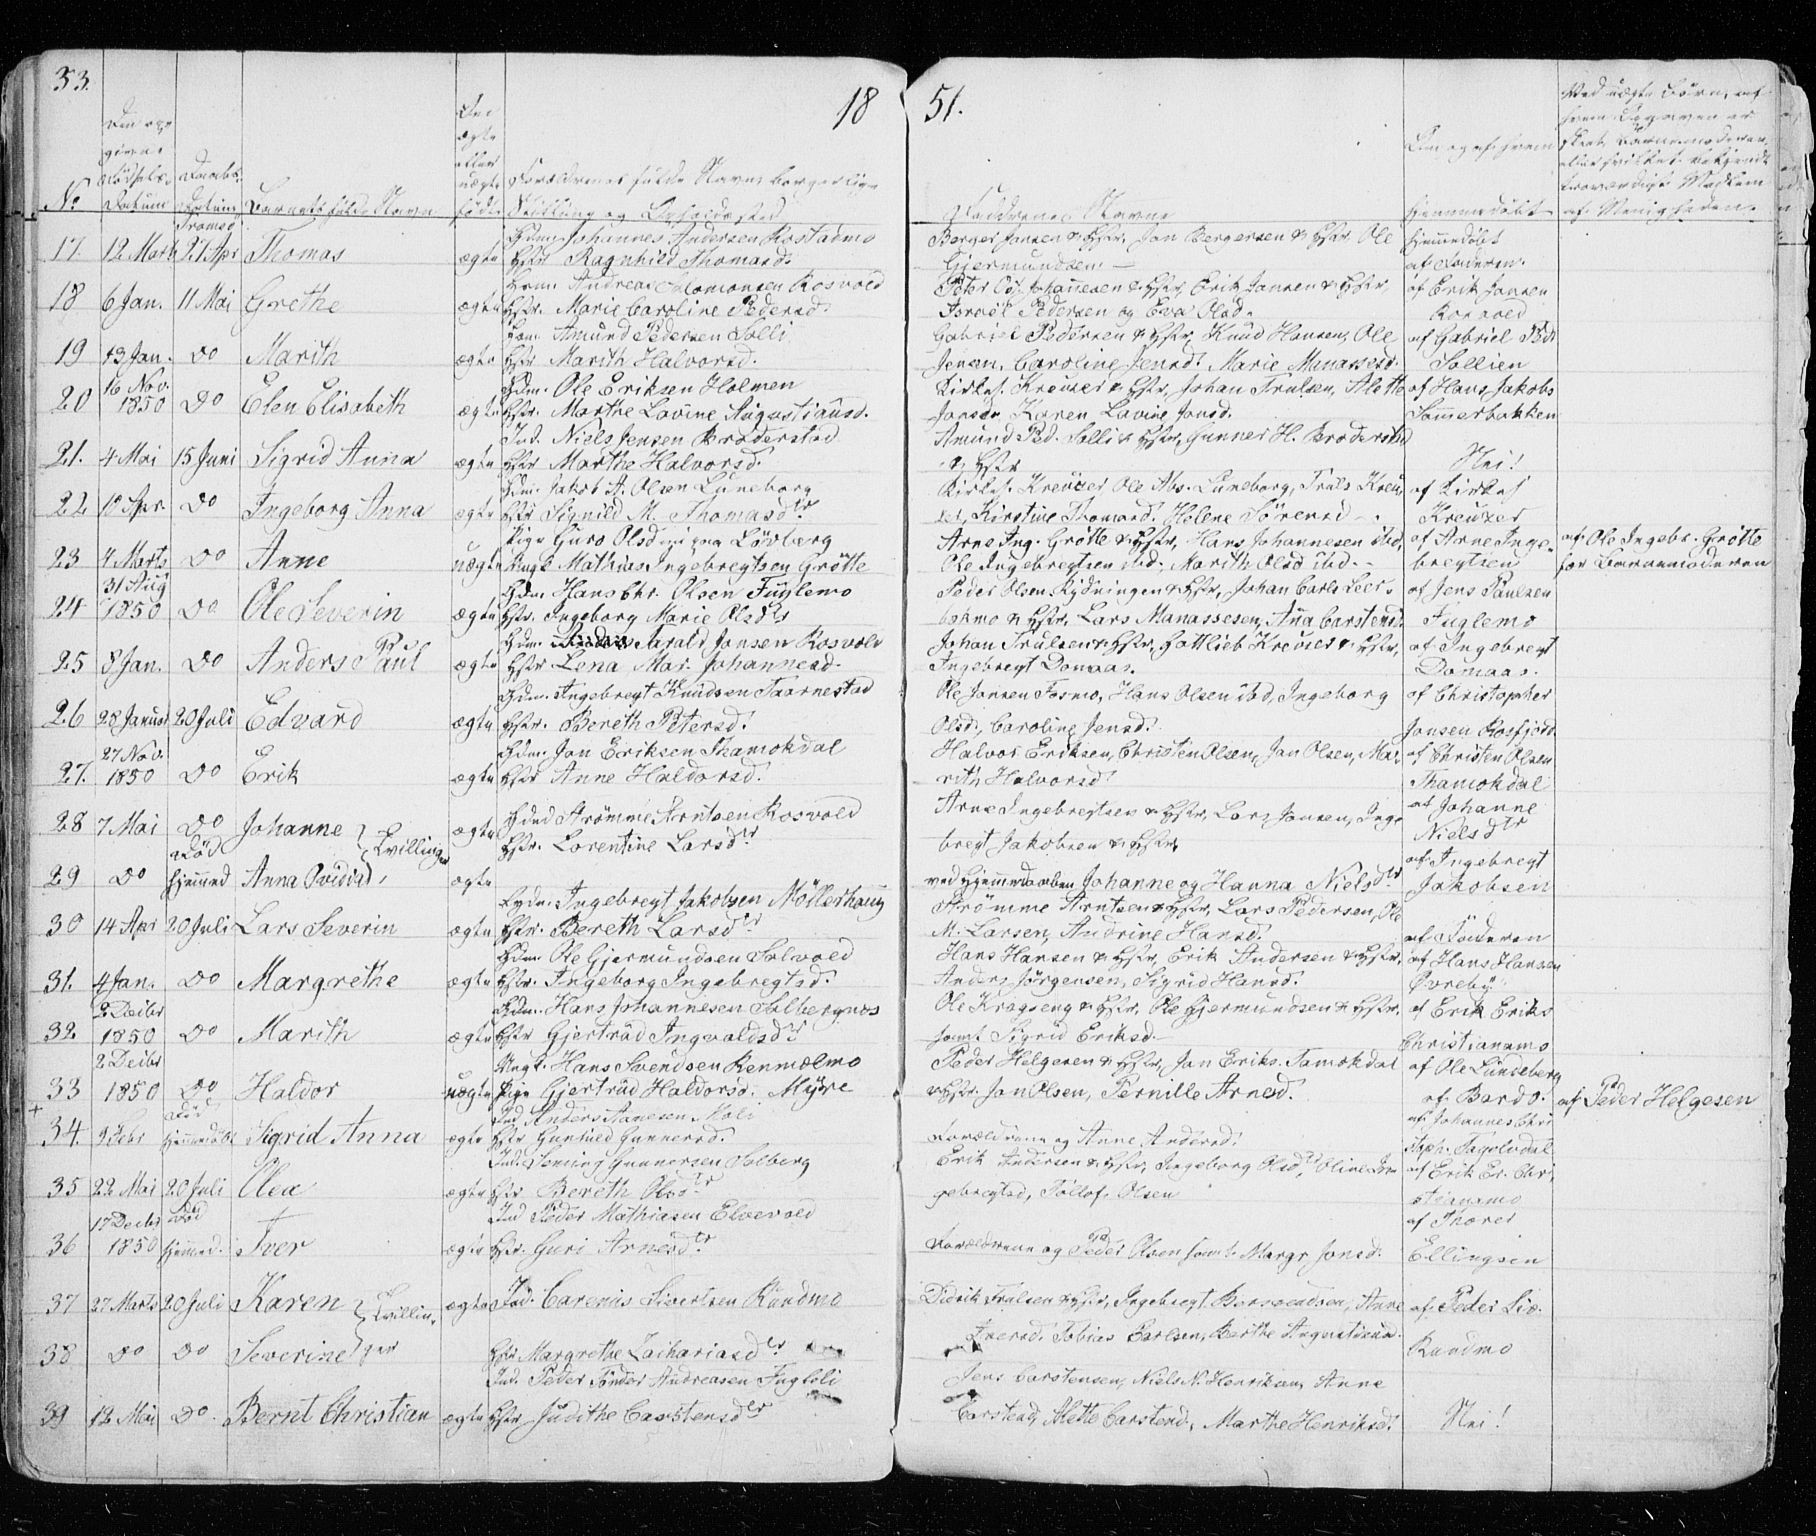 33.
18 51.
No
Den opgivne Fødsels-Datum
Daabs-Datum
Barnets fulde Navn
Om ægte eller uægte fødte
Forældrenes fulde Navn, borgerlige Stilling og Opholdssted
Faddrenes Navne
Om og af hvem hjemmedøbt
Ved uægte Børn, af hvem Opgaven er skeet, Barnemoderen, eller hvilket bekjendt troværdigt Medlem af Menigheden.
17. 12 Marts Tromsø 27 Apr Thomas ægte Gdm. Johannes Andersen Rostadmo Hstr Ragnhild Thomasd. Berger Jansen & Hstr, Jon Bergersen & Hstr, Ole Gjermundsen. — hjemmedøbt af Faderen.
18 6 Jan. 11 Mai Grethe ægte Andreas Salomonsen Rosvold Hstr. Marie Caroline Pedersd. Peter Johannesen & Hstr, Erik Jansen & Hstr, Israël Pedersen og Eva Olsd. af Erik Jansen Rosvold
19 13 Jan. Do Marith ægte Amund Pedersen Solli Hstr Marith Halvorsd. Gabriel Pedersen & Hstr, Knud Hansen, Ole Jensen, Caroline Jensd. Marie Manassesd. af Gabriel Ped. Sollien
20 16 Nov. 1850 Do Elen Elisabeth ægte Gdm. Ole Eriksen Holmen Hstr. Marthe Lovine Augustinusd. Kirkes. Kreutzer & Hstr, Johan Trulsen, Alette Jonsd. Karen Lovine Jonsd. af Hans Jakobs Sommerbakken
21. 4 Mai 15 Juni Sigrid Anna ægte Ind. Niels Jensen Broderstad Hstr Marthe Halvorsd. Amund Ped. Solli & Hstr, Gunner H. Broderstad & Hstr Nei!
22 10 Apr. Do Ingeborg Anna ægte Gdm. Jakob A. Olsen Luneborg Hstr Signild M. Thomasdtr Kirkes. Kreutzer Ole Abs. Luneborg, Truls Kreuzer, Kirstine Thomasd. Helene Sörensd — af Kirkes. Kreutzer
23 4 Marts Do Anne uægte Pige Guro Olsd Lövberg Ungk. Mathias Ingebregtsen Grötte Arne Ing. Grötte & Hstr, Hans Johannesen ibid, Ole Ingebregtsen ibd., Marith Olsd ibd. — af Arne Ingebregtsen af Ole Ingebr. Grötte for Barnemoderen
24 31 Aug 1850 Do Ole Severin ægte Gdm. Hans Chr. Olsen Fuglemo Hstr. Ingeborg Marie Olsdtr Peder Olsen Rydningen & Hstr, Johan Carls & Hstr, Lars Manassesen, Ana Carstensd. af Jens Paulsen Fuglemo
25 8 Jan. Do Anders Paul ægte Gdm. Tarald Jonsen Rosvold Hstr Lena Mar. Johannesd. Johan Trulsen & Hstr, Gottlieb Kreuzer & Hstr, Ingebregt Domaas. af Ingebregt Domaas.
26 28 Januar 20 Juli Edvard ægte Gdm. Ingebregt Knudsen Taarnestad Hstr. Bereth Petersd. Ole Jonsen Fosmo, Hans Olsen ibd, Ingeborg Olsd., Caroline Jensd. af Christopher Jonsen Rosfjord
27. 27 Nov. 1850 Do Erik ægte Gdm. Jon Eriksen Thamokdal Hstr Anne Haldorsd. Halvor Eriksen, Christen Olsen, Jon Olsen, Marith Halvorsd. af Christen Olsen Thamokdal
28 7 Mai Do Johanne } Tvillinger ægte Gdmd Strömme Arntsen Rosvold Hstr. Lorentine Larsdtr Arne Ingebregtsen & Hstr, Lars Jonsen, Ingebregt Jakobsen & Hstr, af Johanne Nielsdtr
29 Do Död hjemmed Anna Ovidia, ægte ved Hjemmedaaben Johanne og Hanna Nielsdtr af Ingebregt Jakobsen
30 14 Apr 20 Juli Lars Severin ægte Gdm. Ingebregt Jakobsen Möllerhaug Hstr. Bereth Larsdtr Strömme Arntsen & Hstr, Lars Pedersen, Ole M. Larsen, Andrine Hansd. af Faderen
31. 4 Jan. Do Margrethe ægte Gdm. Ole Gjermundsen Solvold Hstr. Ingeborg Ingebregtsd. Hans Hansen & Hstr, Erik Andersen & Hstr, Anders Jörgensen, Sigrid Hansd. af Hans Hansen Övreby
32 2 Decbr 1850 Do Marith ægte Gdm. Hans Johannesen Solbergnæs Hstr Gjertrud Ingvaldsdtr Ole Kragseng & Hstr, Ole Gjermundsen & Hstr, samt Sigrid Eriksd. — af Erik Eriks Christianamo
33 2 Decbr 1850 Do Haldor uægte Ungk. Hans Svendsen Renmælmo Pige Gjertrud Haldorsd. Myre Peder Helgesen & Hstr, Jon Eriks. Tamokdal & Hstr. Jon Olsen, Pernille Arnesd. af Ole Lundeberg af Bardo. af Peder Helgesen
+
34. 9 Febr Död hjemmedöbt Sigrid Anna ægte Ind. Anders Hstr Gunild Gunnersd. Forældrene og Anne Andersd. af Johannes Chri
35 22 Mai 20 Juli Olea ægte Ind. Gunnersen Solberg Hstr Bereth Olsdtr Erik Andersen & Hstr, Ingeborg Olsd., Oline Ingebregtsd, Tollof Olsen af Erik Er. Christianamo
36 17 Decbr 1850 Död hjemmed. Iver ægte Ind Peder Mathiasen Elvevold Hstr. Guri Arnesdtr Forældrene og Peder Olsen samt Margr Jonsd. af Thorer Ellingsen
37 27 Marts 20 Juli Karen } Tvillinger ægte Ind. Carenius Sivertsen Rundmo Didrik Trulsen & Hstr, Ingebregt Anne Iversd. Tobias Carlsen, Berthe Augustinusd. af Peder Rundmo
38 Do Do Severine Hstr Margrethe Zachariasdtr
39 12 Mai Do. Bernt Christian ægte Ind. Peder Tönder Andreasen Fuglöli Hstr Judithe Carstensdtr Jens Carstensen, Niels N. Henriksen, Anne Carstensd, Alette Carstensd., Marthe Henriksd. Nei!